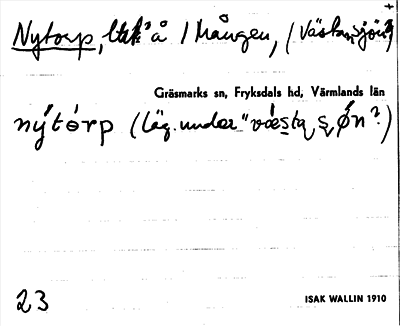 Nytorp, å Mången, (Västansjön?)
Gräsmarks sn, Fryksdals hd, Värmlands län
nýtórp (läg. under "væsta ȿøn?)
23
ISAK WALLIN 1910